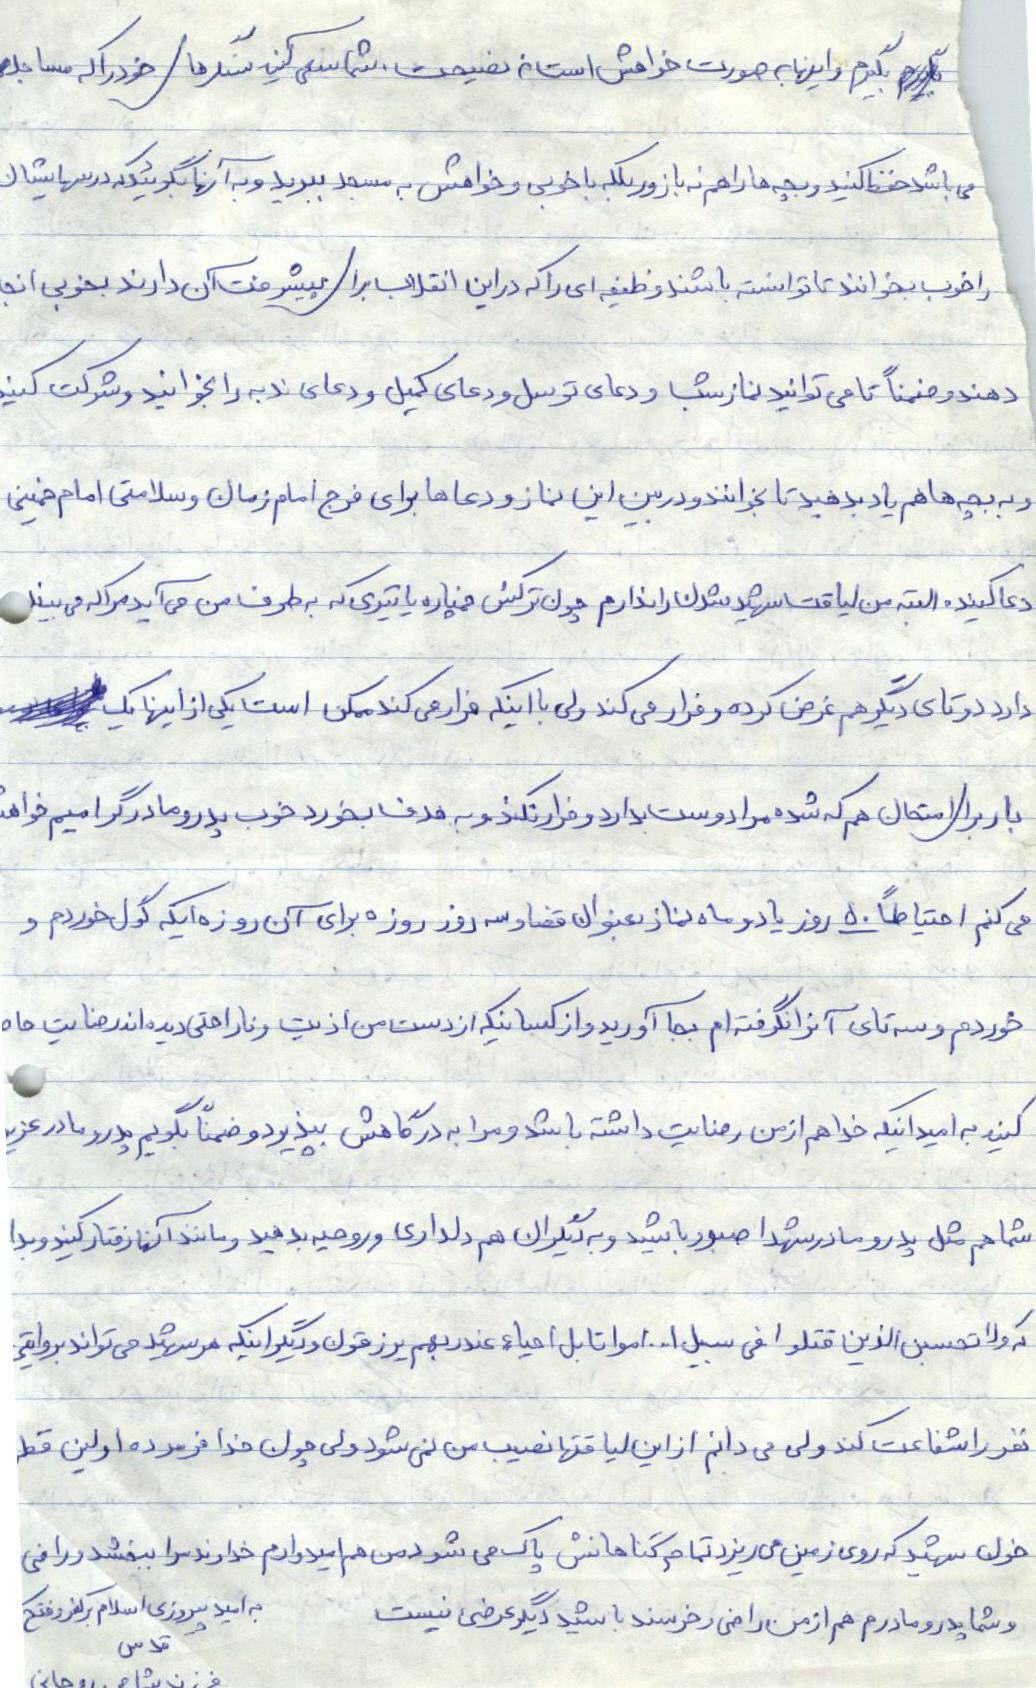 بگیرم و اینها به صورت خواهش است نه نصیحت، شما سعی کنید سنگرهای خود را که مساجد
می باشد حفظ کنید و بچه ها را هم نه با زور بلکه با خوبی و خواهش به مسجد ببرید و به آنها بگوئید که درسهایشان
را خوب بخوانند تا توانسته باشند وظیفه ای را که در این انقلاب برای پیشرفت آن دارند بخوبی انجا
دهند و ضمناً تا می توانید نماز شب و دعای توسل و دعای کمیل و دعای ندبه را بخوانید و شرکت کنید
و به بچه ها هم یاد بدهید تا بخوانند و در بین این نماز و دعاها برای فرج امام زمان و سلامتی امام خمینی
دعا کنید. البته من لیاقت شهید شدن را ندارم چون ترکش خمپاره یا تیری که به طرف من می آید مرا که می بیند
دارد دو تای دیگر هم غرض کرده و فرار می کند ولی با اینکه فرار می کند ممکن است یکی از اینها یک
بار برای امتحان هم که شده مرا دوست بدارد و فرار نکند و به هدف بخورد خوب پدر و مادر گرامیم خواهش
می کنم احتیاطاً ۵۰ روز یا دو ماه نماز بعنوان قضا و سه روز روزه برای آن روزه ایکه گول خوردم و
خوردم و سه تای آنرا نگرفته ام بجا آورید و از کسانیکه از دست من اذیت و ناراحتی دیده اند رضایت حاص
کنید به امید اینکه خدا هم از من رضایت داشته باشد و مرا به درگاهش بپذیرد و ضمناً بگویم پدر و مادر عزیز
شما هم مثل پدر و مادر شهدا صبور باشید و به دیگران هم دلداری و روحیه بدهید و مانند آنها رفتار کنید و بدا
که ولا تحسبن الذین قتلوا فی سبیل ا... امواتا بل احیاء عند ربهم یرزقون و دیگر اینکه هر شهید می تواند بروایتی
نفر را شفاعت کند ولی می دانم از این لیاقتها نصیب من نمی شود ولی چون خدا فرموده اولین قطر
خون شهید که روی زمین می ریزد تمام گناهانش پاک می شود من هم امیدوارم خداوند مرا ببخشد و راضی
و شما پدر و مادرم هم از من راضی و خرسند باشید دیگر عرضی نیست
به امید پیروزی اسلام بر کفر و فتح
قدس
فرزند شما